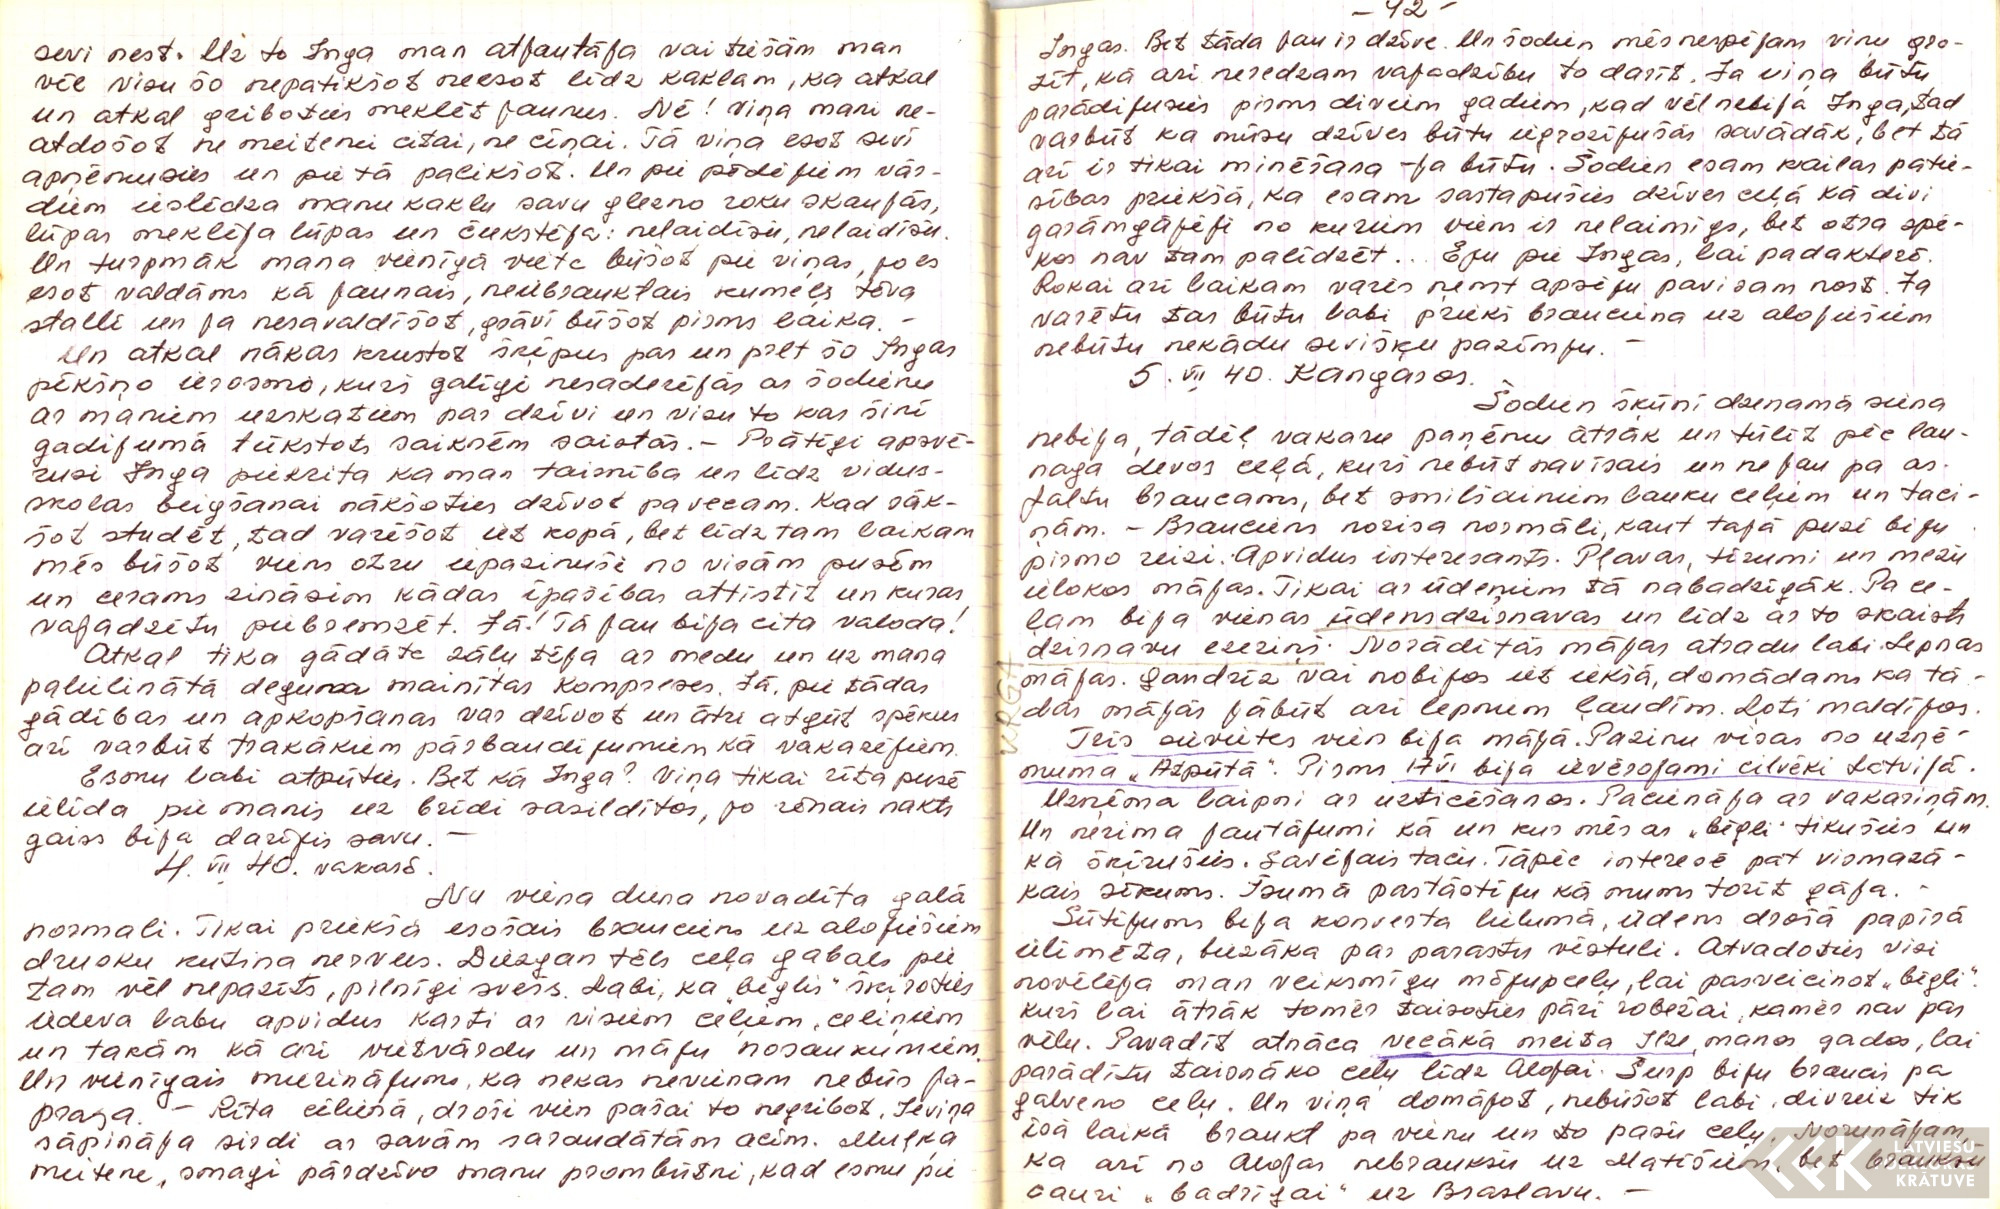 sevi nest. Uz to Inga man atjautāja vai tiešām man
vēl visu šo nepatikšot neesot līdz kaklam, ka atkal
un atkal griboties meklēt jaunus. Nē! Viņa mani ne-
atdošot ne meitenei citai, ne cīņai. Tā viņa esot sevī
apņēmusies un pie tā palikšot. Un pie pēdējiem vār-
diem ieslēdza manu kaklu savu glezno roku skaujās,
lūpas meklēja lūpas un čukstēja: nelaidīšu, nelaidīšu.
Un turpmāk mana vienīgā vieta būšot pie viņas, jo es
esot valdāms kā jaunais, neiebrauktais kumeļš tēva
stallī un ja nesavaldīšot, grāvī būšot pirms laika. -
Un atkal nākas krustot šķēpus par un pret šo Ingas
pēkšņo ierosmo, kurš galīgi nesaderējās ar šodienu
ar maniem uzskatiem par dzīvi un visu to kas šinī
gadījumā tūkstots saiknēm saistās. - Prātīgi apsvē-
rusi Inga piekrita ka man taisnība un līdz vidus-
skolas beigšanai nākšoties dzīvot pa vecam. Kad sāk-
šot studēt, tad varēšot iet kopā, bet līdz tam laikam
mēs būšot viens otru iepazinuši no visām pusēm
un cerams zināsim kādas īpašības attīstīt un kuras
vajadzētu piebremzēt. Jā! Tā jau bija cita valoda!
Atkal tika gādāta zāļu tēja ar medu un uz mana
palielinātā deguna mainītas kompreses. Jā, pie tādas
gādības un apkopšanas var dzīvot un ātri atgūt spēkus
arī varbūt trakākiem pārbaudījumiem kā vakarējiem.
Esmu labi atpūties. Bet kā Inga? Viņa tikai rīta pusē
ielīda pie manis uz brīdi sasildītos, jo rēnais nakts
gaiss bija darījis savu. -
4. VII 40. vakarā.
Nu viena diena novadīta galā
normali. Tikai priekšā esošais brauciens uz alojiešiem
drusku kutina nervus. Diezgan tāls ceļa gabals pie
tam vēl nepazīts, pilnīgi svešs. Labi, ka "bēglis" šķiroties
iedeva labu apvidus karti ar visiem ceļiem, celiņiem
un takām kā arī vietvārdu un māju nosaukumiem.
Un vienīgais mierinājums, ka nekas nevienam nebūs ja-
prasa. - Rīta cēlienā, droši vien pašai to negribot, Ieviņa
sāpināja sirdi ar savām saraudātām acīm. Muļķa
meitene, smagi pārdzīvo manu prombūtni, kad esmu pie
- 42 -
Ingas. Bet tāda jau ir dzīve. Un šodien mēs nespējam viņu gro-
zīt, kā arī neredzam vajadzību to darīt. Ja viņa būtu
parādījusies pirms diviem gadiem, kad vēl nebija Inga, tad
varbūt ka mūsu dzīves būtu iegrozījušās savādāk, bet tā
arī ir tikai minēšana - ja būtu. Šodien esam kailas patie-
sības priekšā, ka esam sastapušies dzīves ceļā kā divi
garāmgājēji no kuriem viens ir nelaimīgs, bet otra spē-
kos nav tam palīdzēt... Eju pie Ingas, lai padakterē.
Rokai arī laikam varēs ņemt apsēju pavisam nost. Ja
varētu tas būtu labi priekš brauciena uz alojiešiem
nebūtu nekādu sevišķu pazīmju. -
5. VII 40. Kangaros.
Šodien šķūnī dzenamā siena
nebija, tādēļ vakaru paņēmu ātrāk un tūlīt pēc lau-
naga devos ceļā, kurš nebūt nav īsais un ne jau pa as-
faltu braucams, bet smilšainiem lauku ceļiem un taci-
ņām. - Brauciens norisa normāli, kaut tajā pusē biju
pirmo reizi. Apvidus interesants. Pļavas, tīrumi un mežu
ielokos mājas. Tikai ar ūdeņiem tā nabadzīgāk. Pa ce-
ļam bija vienas ūdensdzirnavas un līdz ar to skaists
dzirnavu ezeriņš. Norādītās mājas atradu labi. Lepnas
mājas. Gandrīz vai nobijos iet iekšā, domādams ka tā-
dās mājās jābūt arī lepniem ļaudīm. Ļoti maldījos.
Trīs sievietes vien bija mājā. Pazinu visas no uzņē-
muma "Atpūtā". Pirms 17 VI bija ievērojami cilvēki Latvijā.
Uzņēma laipni ar uzticēšanos. Pacienāja ar vakariņām.
Un nerima jautājumi kā un kur mēs ar "bēgli" tikušies un
kā šķīrušies. Savējais taču. Tāpēc interesē pat vismazā-
kais sīkums. Īsumā pastāstīju kā mums torīt gāja. -
Sūtījums bija konverta lielumā, ūdens drošā papīrā
ielīmēta, biezāka par parastu vēstuli. Atvadoties visi
novēlēja man veiksmīgu mājupceļu, lai pasveicinot "bēgli".
kurš lai ātrāk tomēr taisoties pāri robežai, kamēr nav par
vēlu. Pavadīt atnāca vecākā meita Ilze, manos gados, lai
parādītu taisnāko ceļu līdz Alojai. Šurp biju braucis pa
galveno ceļu. Un viņa domājot, nebūšot labi, divreiz tik
īsā laikā braukt pa vienu un to pašu ceļu. Norunājam,
ka arī no Alojas nebraukšu uz Matīšiem, bet braukšu
cauri "badrīgai" uz Braslavu. -
LATVIEŠU
FOLKLORAS
KRĀTUVE